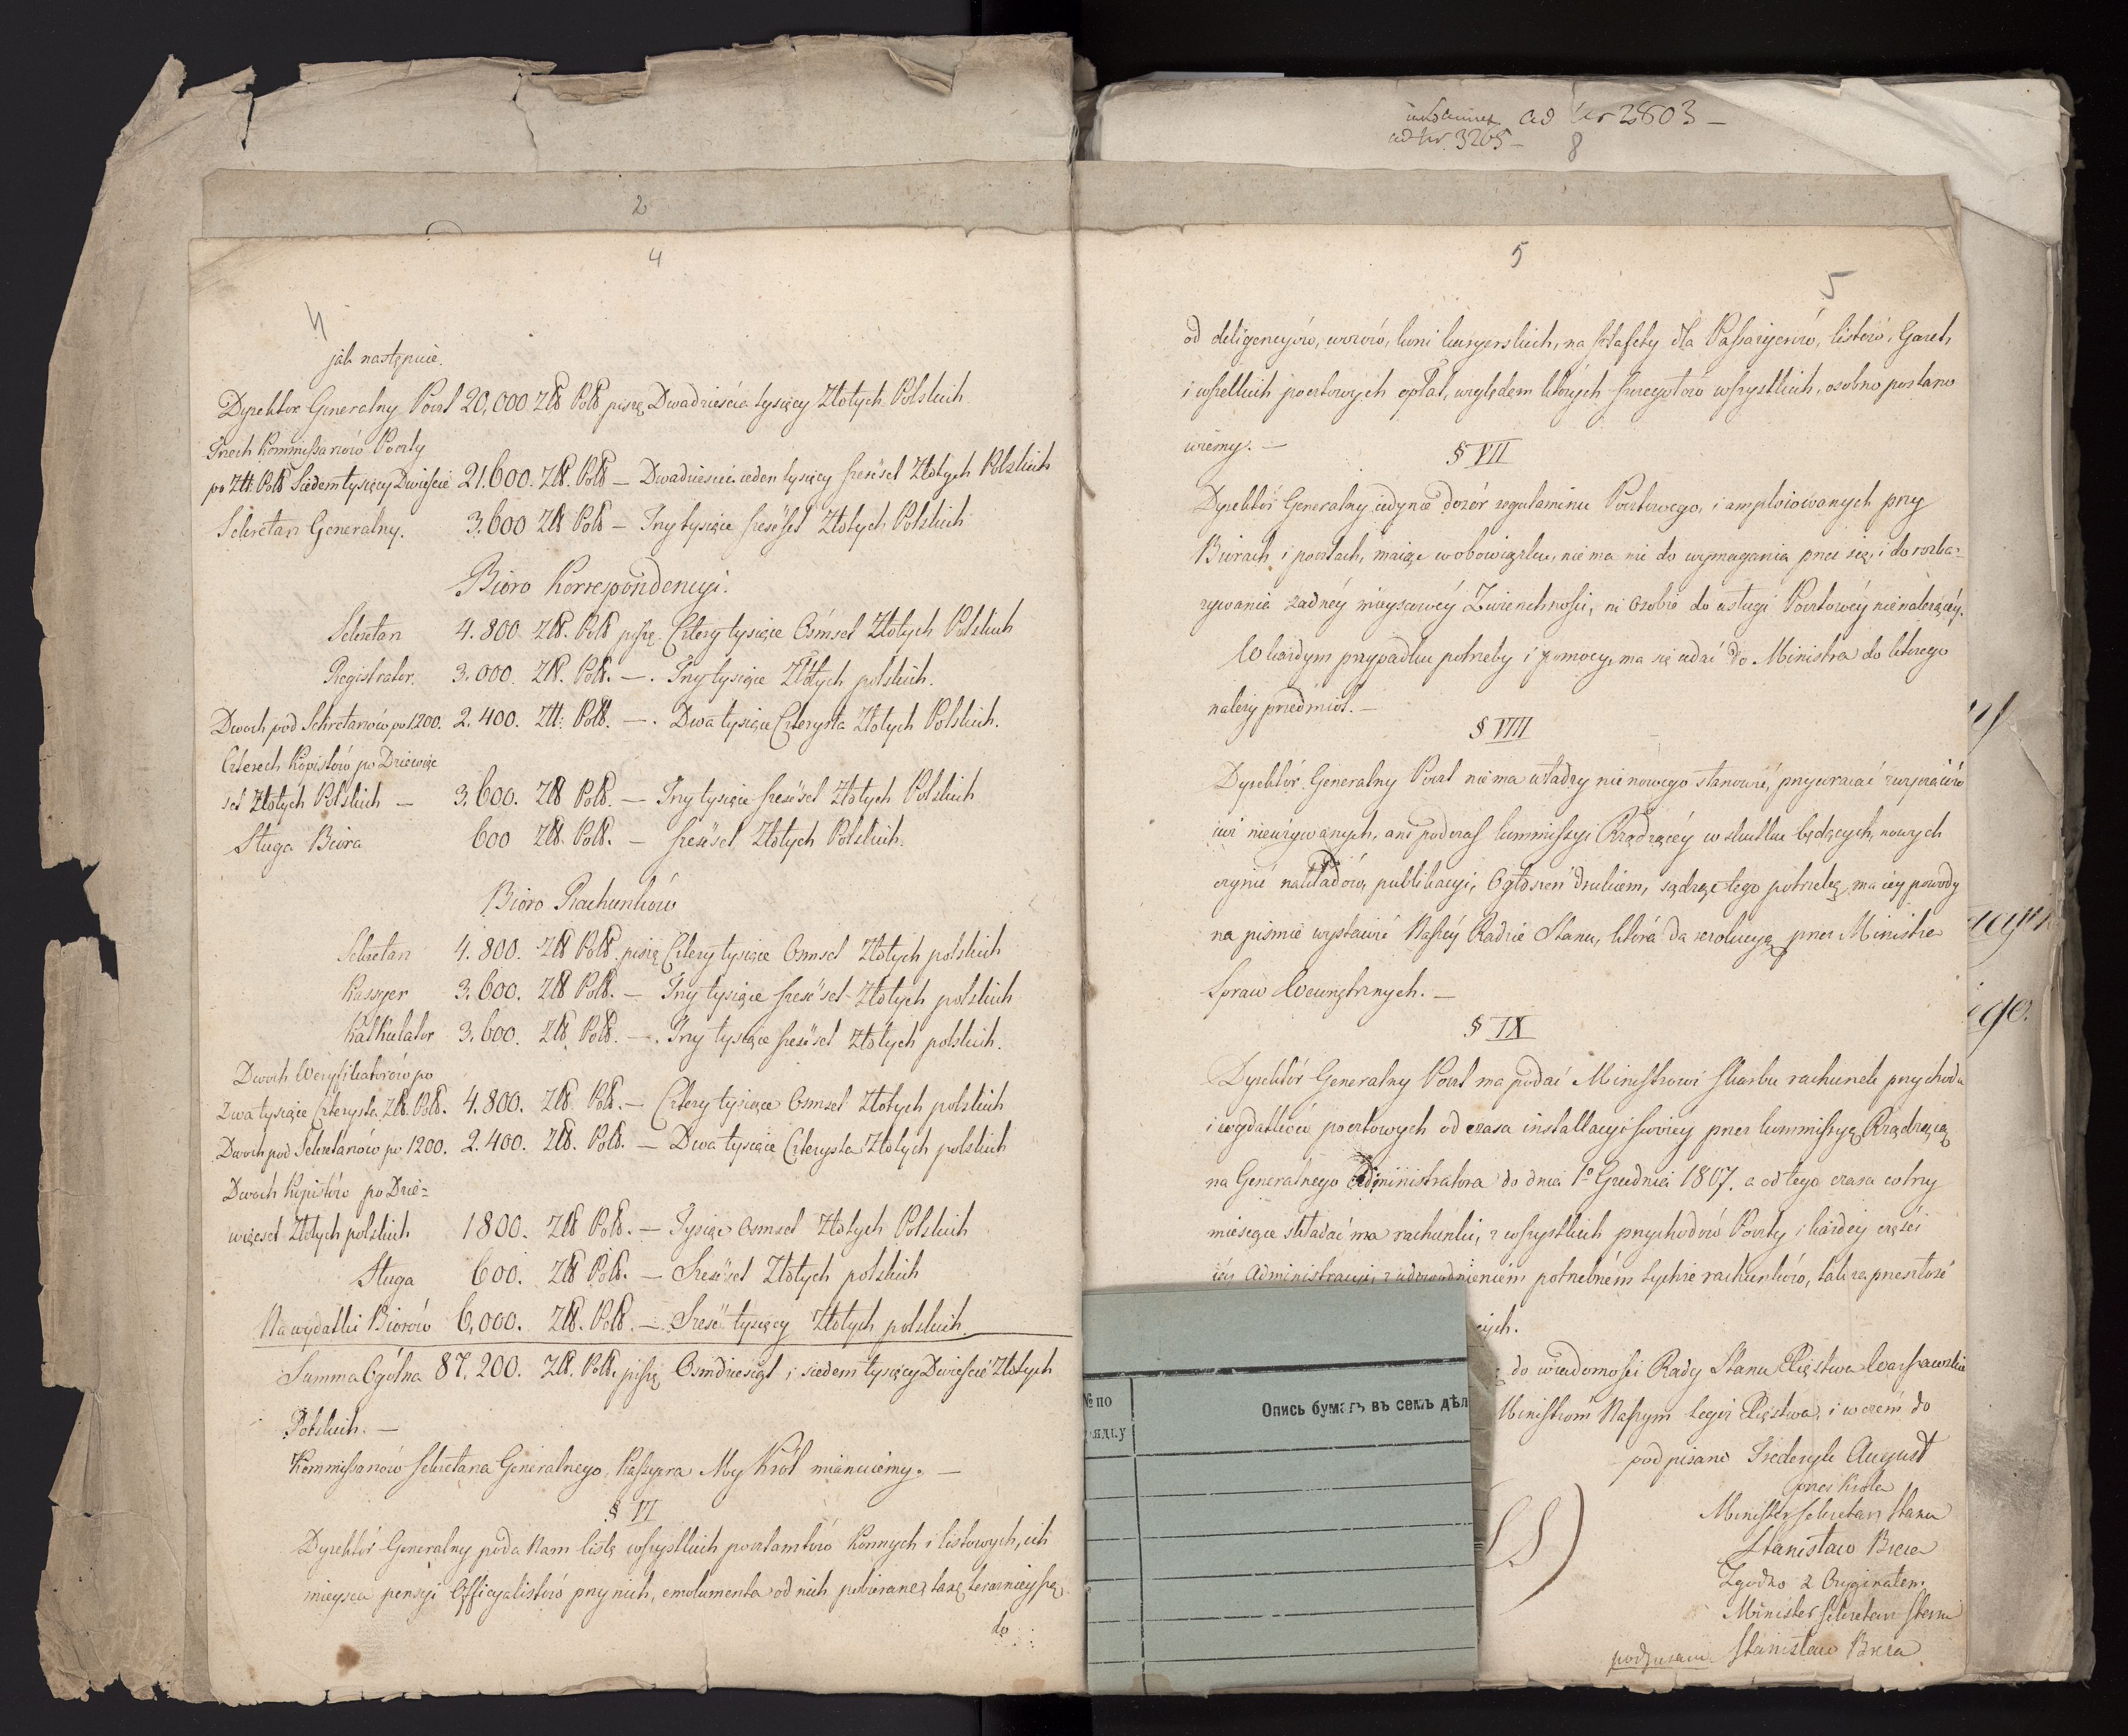 2
4
4
jak następuie.
Dyrektor Generalny Poczt 20,000 Złł Polł piszę Dwadzieścia tysięcy Złotych Polskich
Trzech Kommissarzów Poczty
po Złł. Polł Siedem tysięcy Dwieście 21.600. Złł. Polł — Dwadzieścia ieden tysięcy sześćset Złotych Polskich
Sekretarz Generalny. 3.600 Złł Polł — Trzy tysiące sześćset Złotych Polskich
Bióro Korrespondencyi.
Sekretarz 4.800 Złł. Polł piszę. Cztery tysiące Ośmset Złotych Polskich
Registrator. 3.000. Złł. Polł. —. Trzy tysiące Złotych polskich.
Dwóch pod Sekretarzów po 1200. 2.400. Złł: Polł. —. Dwa tysiące Czterysta Złotych Polskich.
Czterech Kopistów po Dziewięc
set Złotych Polskich — 3.600. Złł Polł. — Trzy tysiące sześćset Złotych Polskich
Sługa Biora 600 Złł. Polł. — sześćset Złotych Polskich.
Bióro Rachunków
Sekretarz 4.800. Złł Polł. piszę Cztery tysiące Osmset Złotych polskich
Kassyer 3.600. Złł Polł. — Trzy tysiące sześćset Złotych polskich
Kalkulator 3.600. Złł. Polł. —. Trzy tysiące sześćset Złotych polskich.
Dwóch Weryfikatorów po
Dwa tysiące Czterysta. Złł. Polł. 4.800. Złł. Polł. — Cztery tysiące Osmset Złotych polskich
Dwóch pod Sekretarzów po 1200. 2.400. Złł. Polł. — Dwa tysiące Czterysta Złotych polskich
Dwóch Kopistów po Dzie=
więcset Złotych polskich 1800. Złł Polł. — Tysiąc Osmset Złotych Polskich
Sługa 600. Złł Polł. — Sześćset Złotych polskich
Na wydatki Biorów 6,000. Złł. Polł. — Sześć tysięcy Złotych polskich.
Summa Ogólna 87.200. Złł. Polł. piszę Osmdziesiąt i siedem tysięcy Dwieście Złotych
Polskich. —
Kommissarzów Sekretarza Generalnego, Kassyera My Król mianuiemy. —
§ VI
Dyrektór Generalny poda Nam listę wszystkich pocztamtów Konnych i listowych, ich
mieysca pensyi Officyalistów przy nich, emolumenta od nich pobierane, taxę teraznieyszą
do
ad Nr 2803 —
ad Nr. 3205 —
8
5
5
od diligencyów, wozów, koni kuryerskich, na sztafety dla Passażyerów, listów, Gazet,
i wszelkich pocztowych opłat, względem których szczegółów wszystkich, osobno postano
wiemy. —
§ VII
Dyrektór Generalny iedynie dozór regulaminu Pocztowego, i amploiowanych przy
Biórach i pocztach, maiąc w obowiązku, nie ma nic do wymagania przez się, i do rozka=
zywania żadnéy mieyscowéy Zwierzchności, ni Osobie do usługi Pocztowéy nienależącéy.
W każdym przypadku potrzeby i pomocy, ma się udać do Ministra do którego
należy przedmiot. —
§ VIII
Dyrektór Generalny Poczt nie ma władzy nic nowego stanowić, przywracać zwyczaiów
iuż nieużywanych, ani podczas kommissyi Rządzącéy w skutku będących, nowych
czynić nakładów, publikacyi, Ogłoszeń drukiem, sądząc tego potrzebę, ma iéy powody
na piśmie wystawić Naszéy Radzie Stanu, która da rezolucyą przez Ministra
Spraw Wewnętrznych. —
§ IX
Dyrektór Generalny Poczt ma podać Ministrowi Skarbu rachunek przychodu
i wydatków pocztowych od czasu installacyi swoiey przez kommissyą Rządzącą
na Generalnego Administratora do dnia 1º Grudnia 1807. a od tego czasu co trzy
miesiące składać ma rachunki, z wszystkich przychodów Poczty i każdey części
iéy Administracyi, z udowodnieniem potrzebném tychże rachunków, tak za przeszłość
cych.
do wiadomości Rady Stanu Xięstwa Warszawskie
Ministrom Naszym tegoż Xięstwa, i w czém do
podpisano Frederyk August
przez Króla
Minister Sekretarz Stanu
Stanisław Breza
(LS)
Zgodno z Oryginałem
Minister Sekretarz Stanu
podpisano Stanisław Breza
№ по
ядку
Опись бумагъ въ семъ дѣл